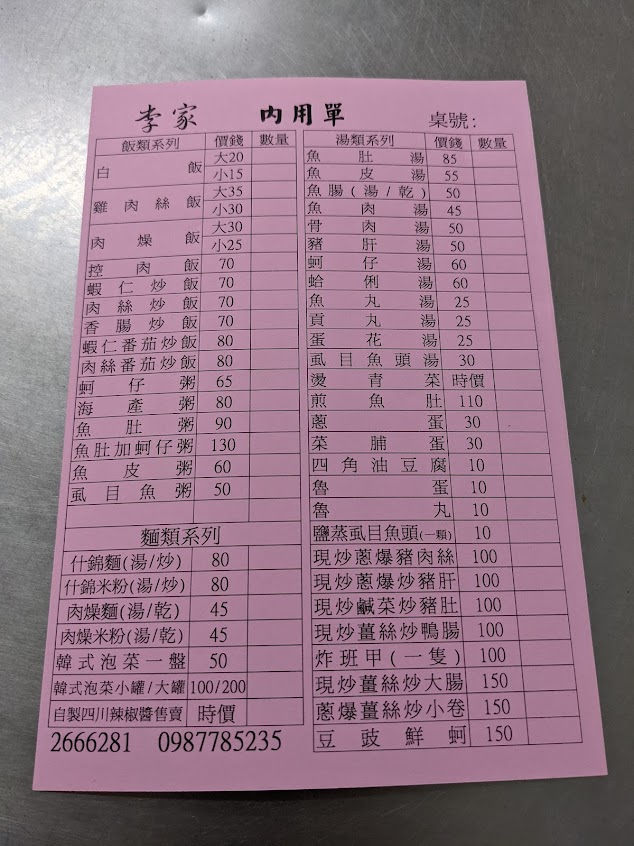 李家 內用單 桌號:
飯類系列 價錢 數量
白飯 大20
小15
雞肉絲飯 大35
小30
肉燥飯 大30
小25
控肉飯 70
蝦仁炒飯 70
肉絲炒飯 70
香腸炒飯 70
蝦仁番茄炒飯 80
肉絲番茄炒飯 80
蚵仔粥 65
海產粥 80
魚肚粥 90
魚肚加蚵仔粥 130
魚皮粥 60
虱目魚粥 50
麵類系列
什錦麵(湯/炒) 80
什錦米粉(湯/炒) 80
肉燥麵(湯/乾) 45
肉燥米粉(湯/乾) 45
韓式泡菜一盤 50
韓式泡菜小罐/大罐 100/200
自製四川辣椒醬售賣 時價
2666281 0987785235
湯類系列 價錢 數量
魚肚湯 85
魚皮湯 55
魚腸(湯/乾) 50
魚肉湯 45
骨肉湯 50
豬肝湯 50
蚵仔湯 60
蛤俐湯 60
魚丸湯 25
貢丸湯 25
蛋花湯 25
虱目魚頭湯 30
燙青菜 時價
煎魚肚 110
蔥蛋 30
菜脯蛋 30
四角油豆腐 10
魯蛋 10
魯丸 10
鹽蒸虱目魚頭(一顆) 10
現炒蔥爆豬肉絲 100
現炒蔥爆炒豬肝 100
現炒鹹菜炒豬肚 100
現炒薑絲炒鴨腸 100
炸班甲(一隻) 100
現炒薑絲炒大腸 150
蔥爆薑絲炒小卷 150
豆豉鮮蚵 150